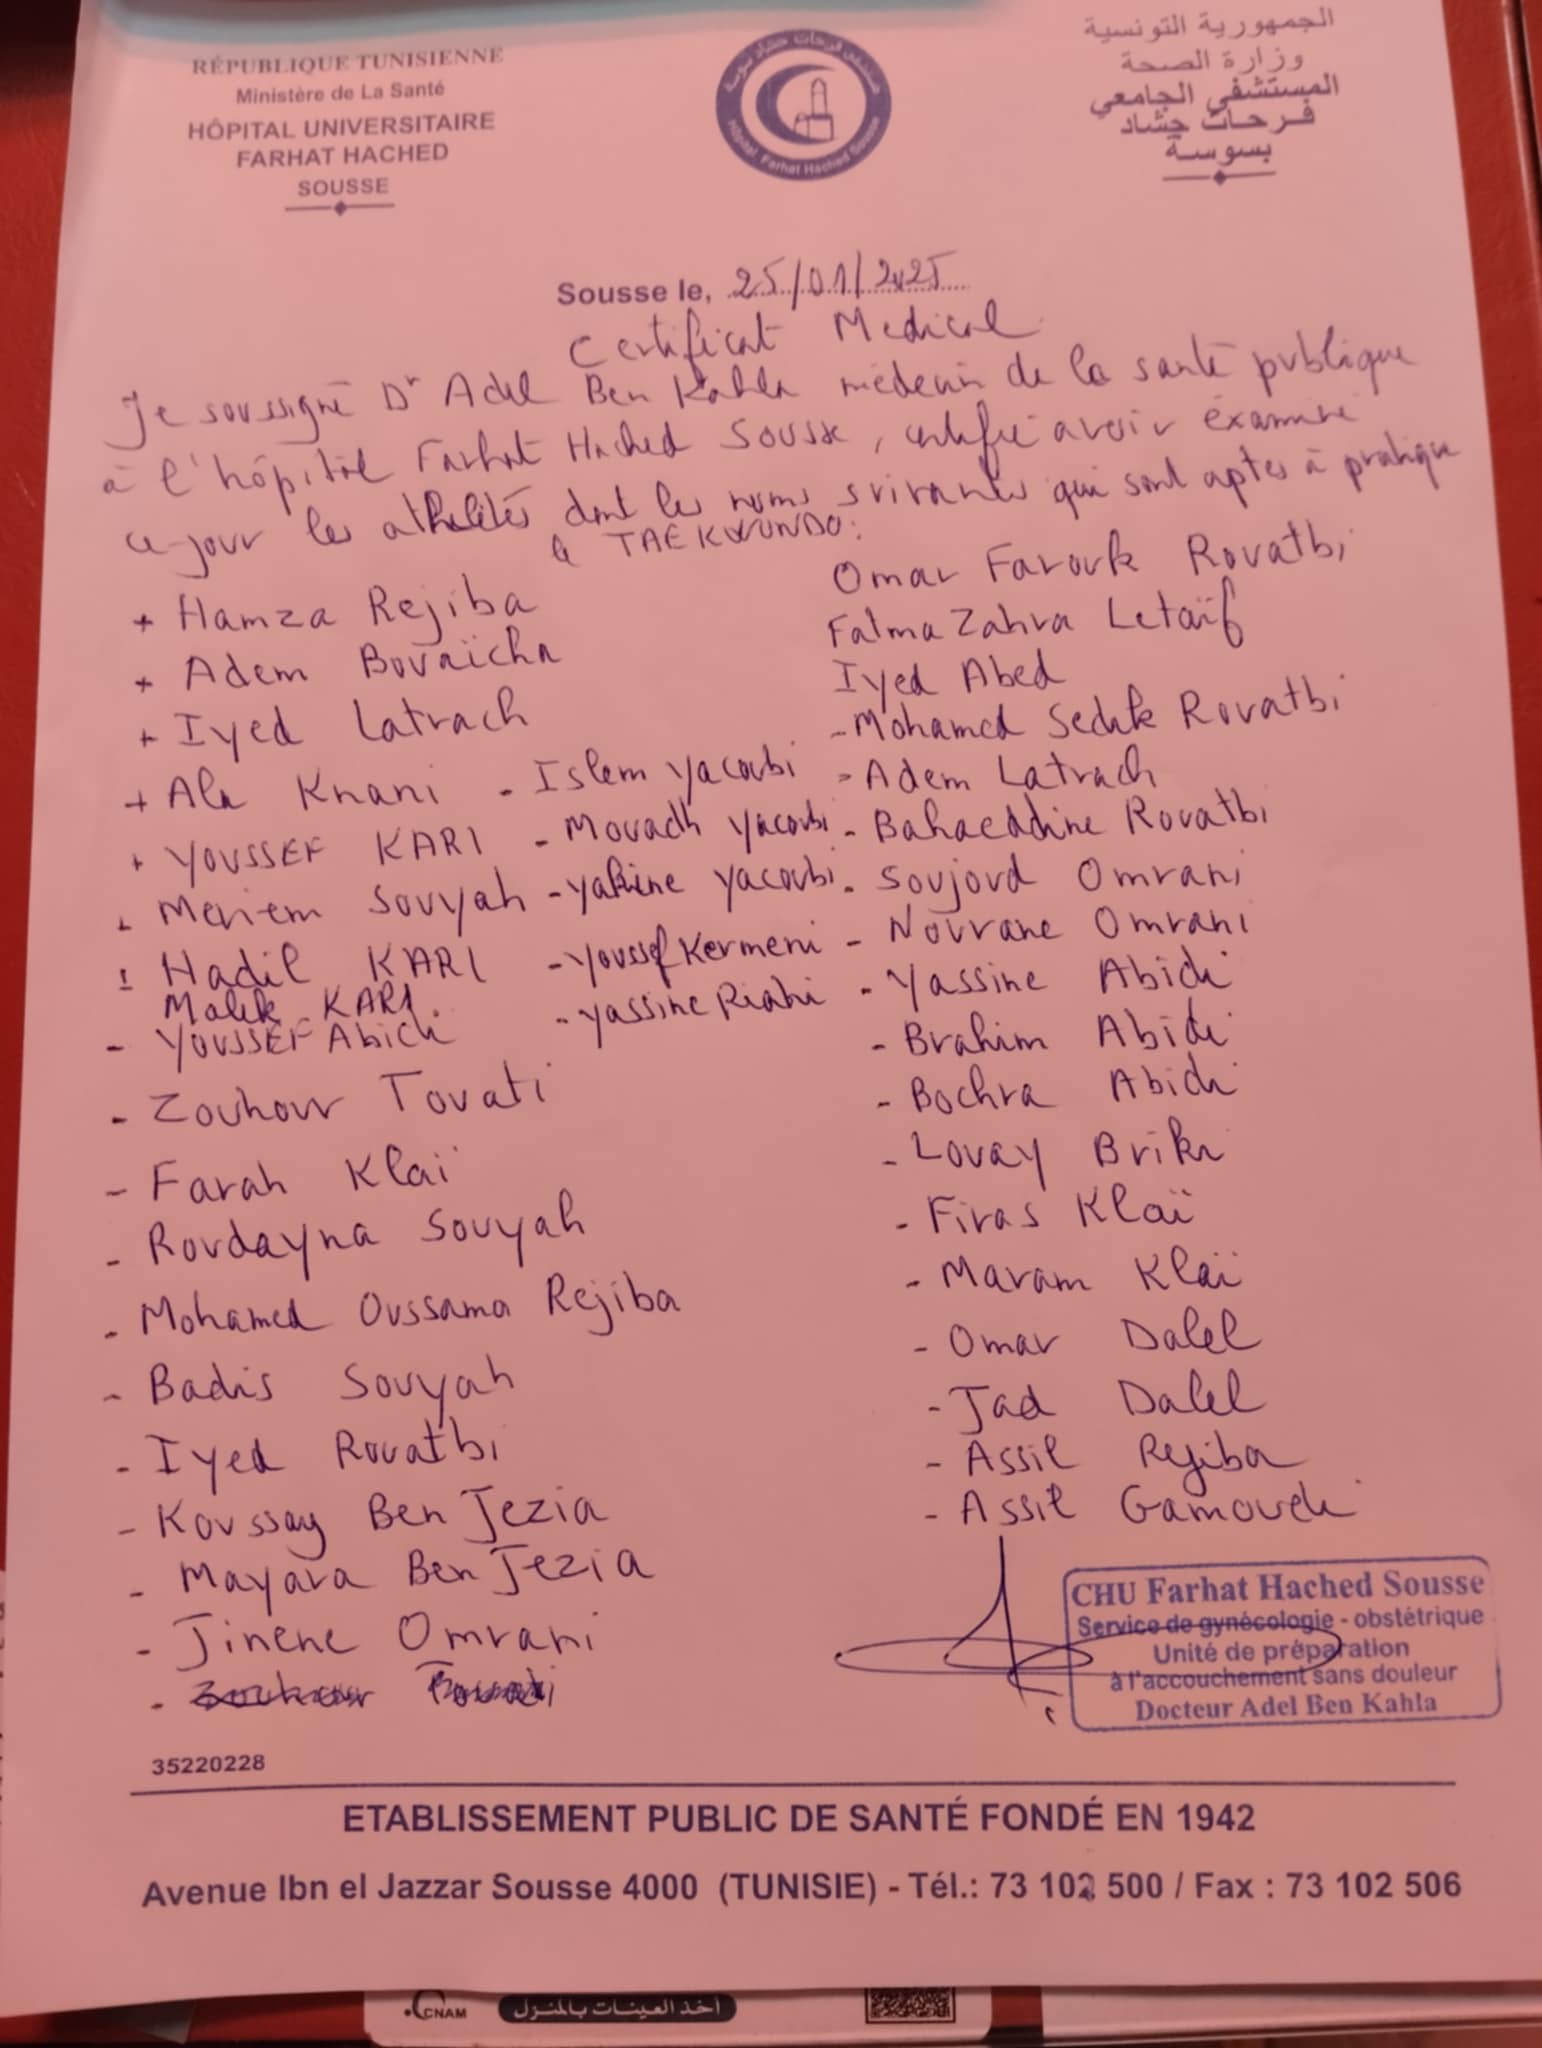 RÉPUBLIQUE TUNISIENNE
Ministère de La Santé
HÔPITAL UNIVERSITAIRE
FARHAT HACHED
SOUSSE
Hôpital Farhat Hached Sousse
الجمهورية التونسية
وزارة الصحة
المستشفى الجامعي
فرحات حشاد
بسوسة
Sousse le, 25/01/2025
Certificat Medical
Je soussigné Dr Adel Ben Kahla médecin de la santé publique
à l'hôpital Farhat Hached Sousse, certifie avoir examiné
ce jour les dont les noms suivants qui sont aptes à pratique
le TAEKWONDO:
+ Hamza Rejiba
+ Adem Bouaïcha
+ Iyed Latrach
+ Ala Knani
+ YOUSSEF KARI
+ Meriem Souyah
Hadil KARI
Malek KARI
- YOUSSEF Abidi
- Zouhour Touati
- Farah Klaï
- Roudayna Souyah
- Mohamed Oussama Rejiba
- Badis Souyah
- Iyed Rouatbi
- Koussay Ben Jezia
- Mayara Ben Jezia
- Jinene Omrani
-
- Islem Yacoubi
- Mouadh Yacoubi
- Yakine Yacoubi
- Youssef Kermeni
- Yassine Riahi
Omar Farouk Rouatbi
Fatma Zahra Letaïf
Iyed Abed
- Mohamed Sedik Rouatbi
- Adem Latrach
- Bahaeddine Rouatbi
- Soujoud Omrani
- Nourane Omrani
- Yassine Abidi
- Brahim Abidi
- Bochra Abidi
- Louay Briki
- Firas Klaï
- Maram Klaï
- Omar Dalel
- Jad Dalel
- Assil Rejiba
- Assil Gamoudi
CHU Farhat Hached Sousse
Service de gynécologie - obstétrique
Unité de préparation
à l'accouchement sans douleur
Docteur Adel Ben Kahla
35220228
ETABLISSEMENT PUBLIC DE SANTÉ FONDÉ EN 1942
Avenue Ibn el Jazzar Sousse 4000 (TUNISIE) - Tél.: 73 102 500 / Fax : 73 102 506
CNAM
أخذ العينات بالمنزل